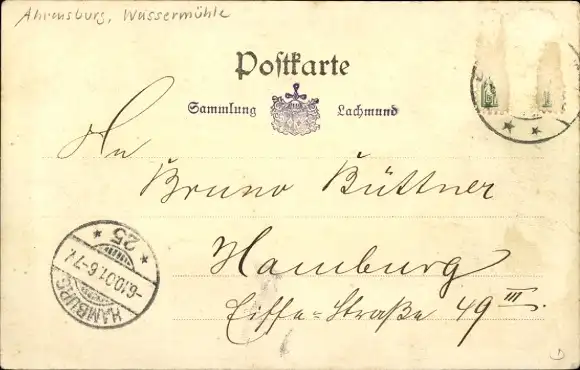 Ahrensburg, Wassermühle
Postkarte
Sammlung Lachmund
Hn
Bruno Büttner
Hamburg
Eiffe-Straße 49 III.
HAMBURG
-6.10.01.6-7V.
* 25 *